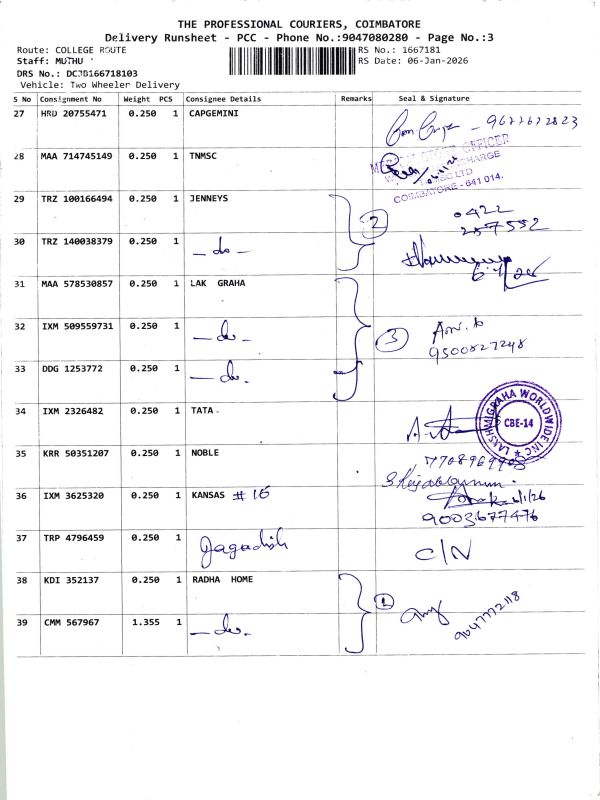 THE PROFESSIONAL COURIERS, COIMBATORE
Delivery Runsheet - PCC - Phone No.:9047080280 - Page No.:3
Route: COLLEGE ROUTE RS No.: 1667181
Staff: MUTHU RS Date: 06-Jan-2026
DRS No.: DCJB166718103
Vehicle: Two Wheeler Delivery
S No Consignment No Weight PCS Consignee Details Remarks Seal & Signature
27 HRD 20755471 0.250 1 CAPGEMINI
9677672823
28 MAA 714745149 0.250 1 TNMSC
OFFICER
LTD
COIMBATORE - 641 014.
29 TRZ 100166494 0.250 1 JENNEYS
2
0422
257552
30 TRZ 140038379 0.250 1 — do —
31 MAA 578530857 0.250 1 LAK GRAHA
32 IXM 509559731 0.250 1 — do -
3
9500827248
33 DDG 1253772 0.250 1 — do -
34 IXM 2326482 0.250 1 TATA
LAKSHMIGRAHA WORLDWIDE INC
CBE-14
35 KRR 50351207 0.250 1 NOBLE
36 IXM 3625320 0.250 1 KANSAS # 16
6/1/26
9003677476
37 TRP 4796459 0.250 1 Jagadish C/N
38 KDI 352137 0.250 1 RADHA HOME
1
9047772118
39 CMM 567967 1.355 1 — do -